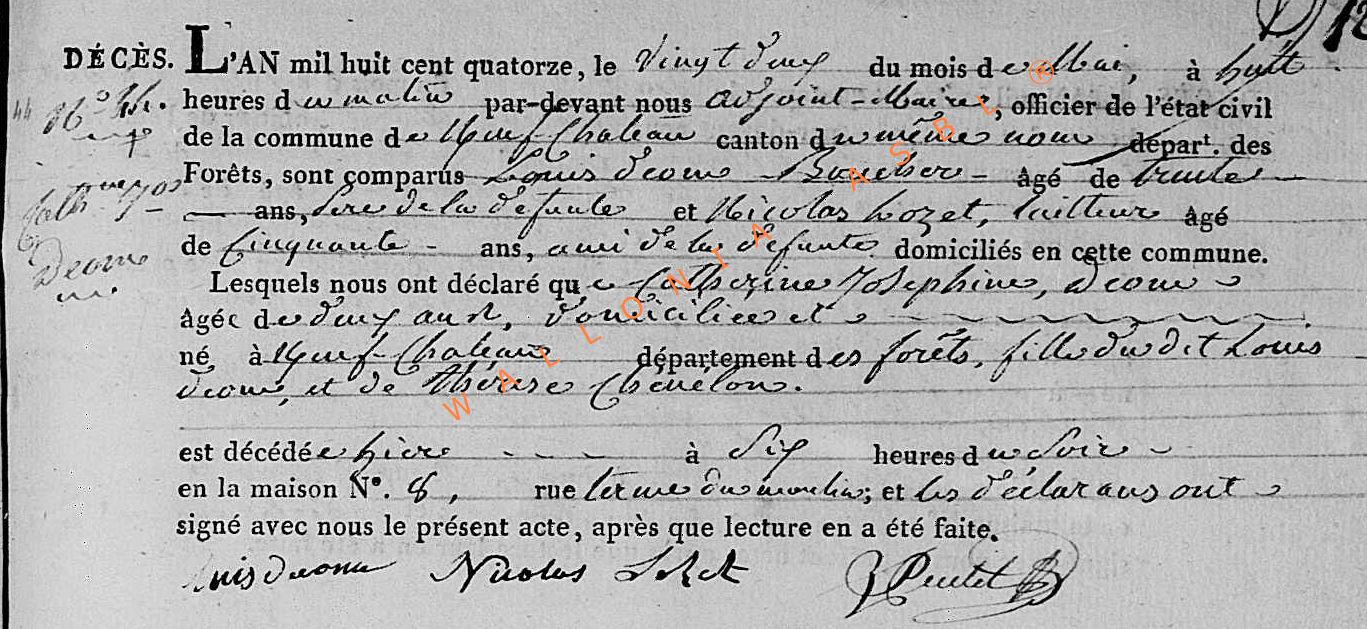 DÉCÈS. L'AN mil huit cent quatorze, le vingt deux du mois de Mai, à huit
heures du matin par-devant nous adjoint-Maire, officier de l'état civil
de la commune de Neuf-Chateau canton du même nom départ. des
Forêts, sont comparus Louis Deom Boucher âgé de trente
ans, pere de la defunte et Nicolas Lozet, tailleur âgé
de Cinquante ans, ami de la defunte domiciliés en cette commune.
Lesquels nous ont déclaré que Catherine Josephine, deom
âgée de deux ans, domiciliée et
né à Neuf-Chateau département des forêts, fille du dit Louis
deom, et de thérese
est décédée hier à Six heures du Soir
en la maison N°. 8, rue terme du moulin; et les déclarans ont
signé avec nous le présent acte, après que lecture en a été faite.
Louis deom Nicolas Lozet
Cath
Deom
WALLONIA ASBL ®